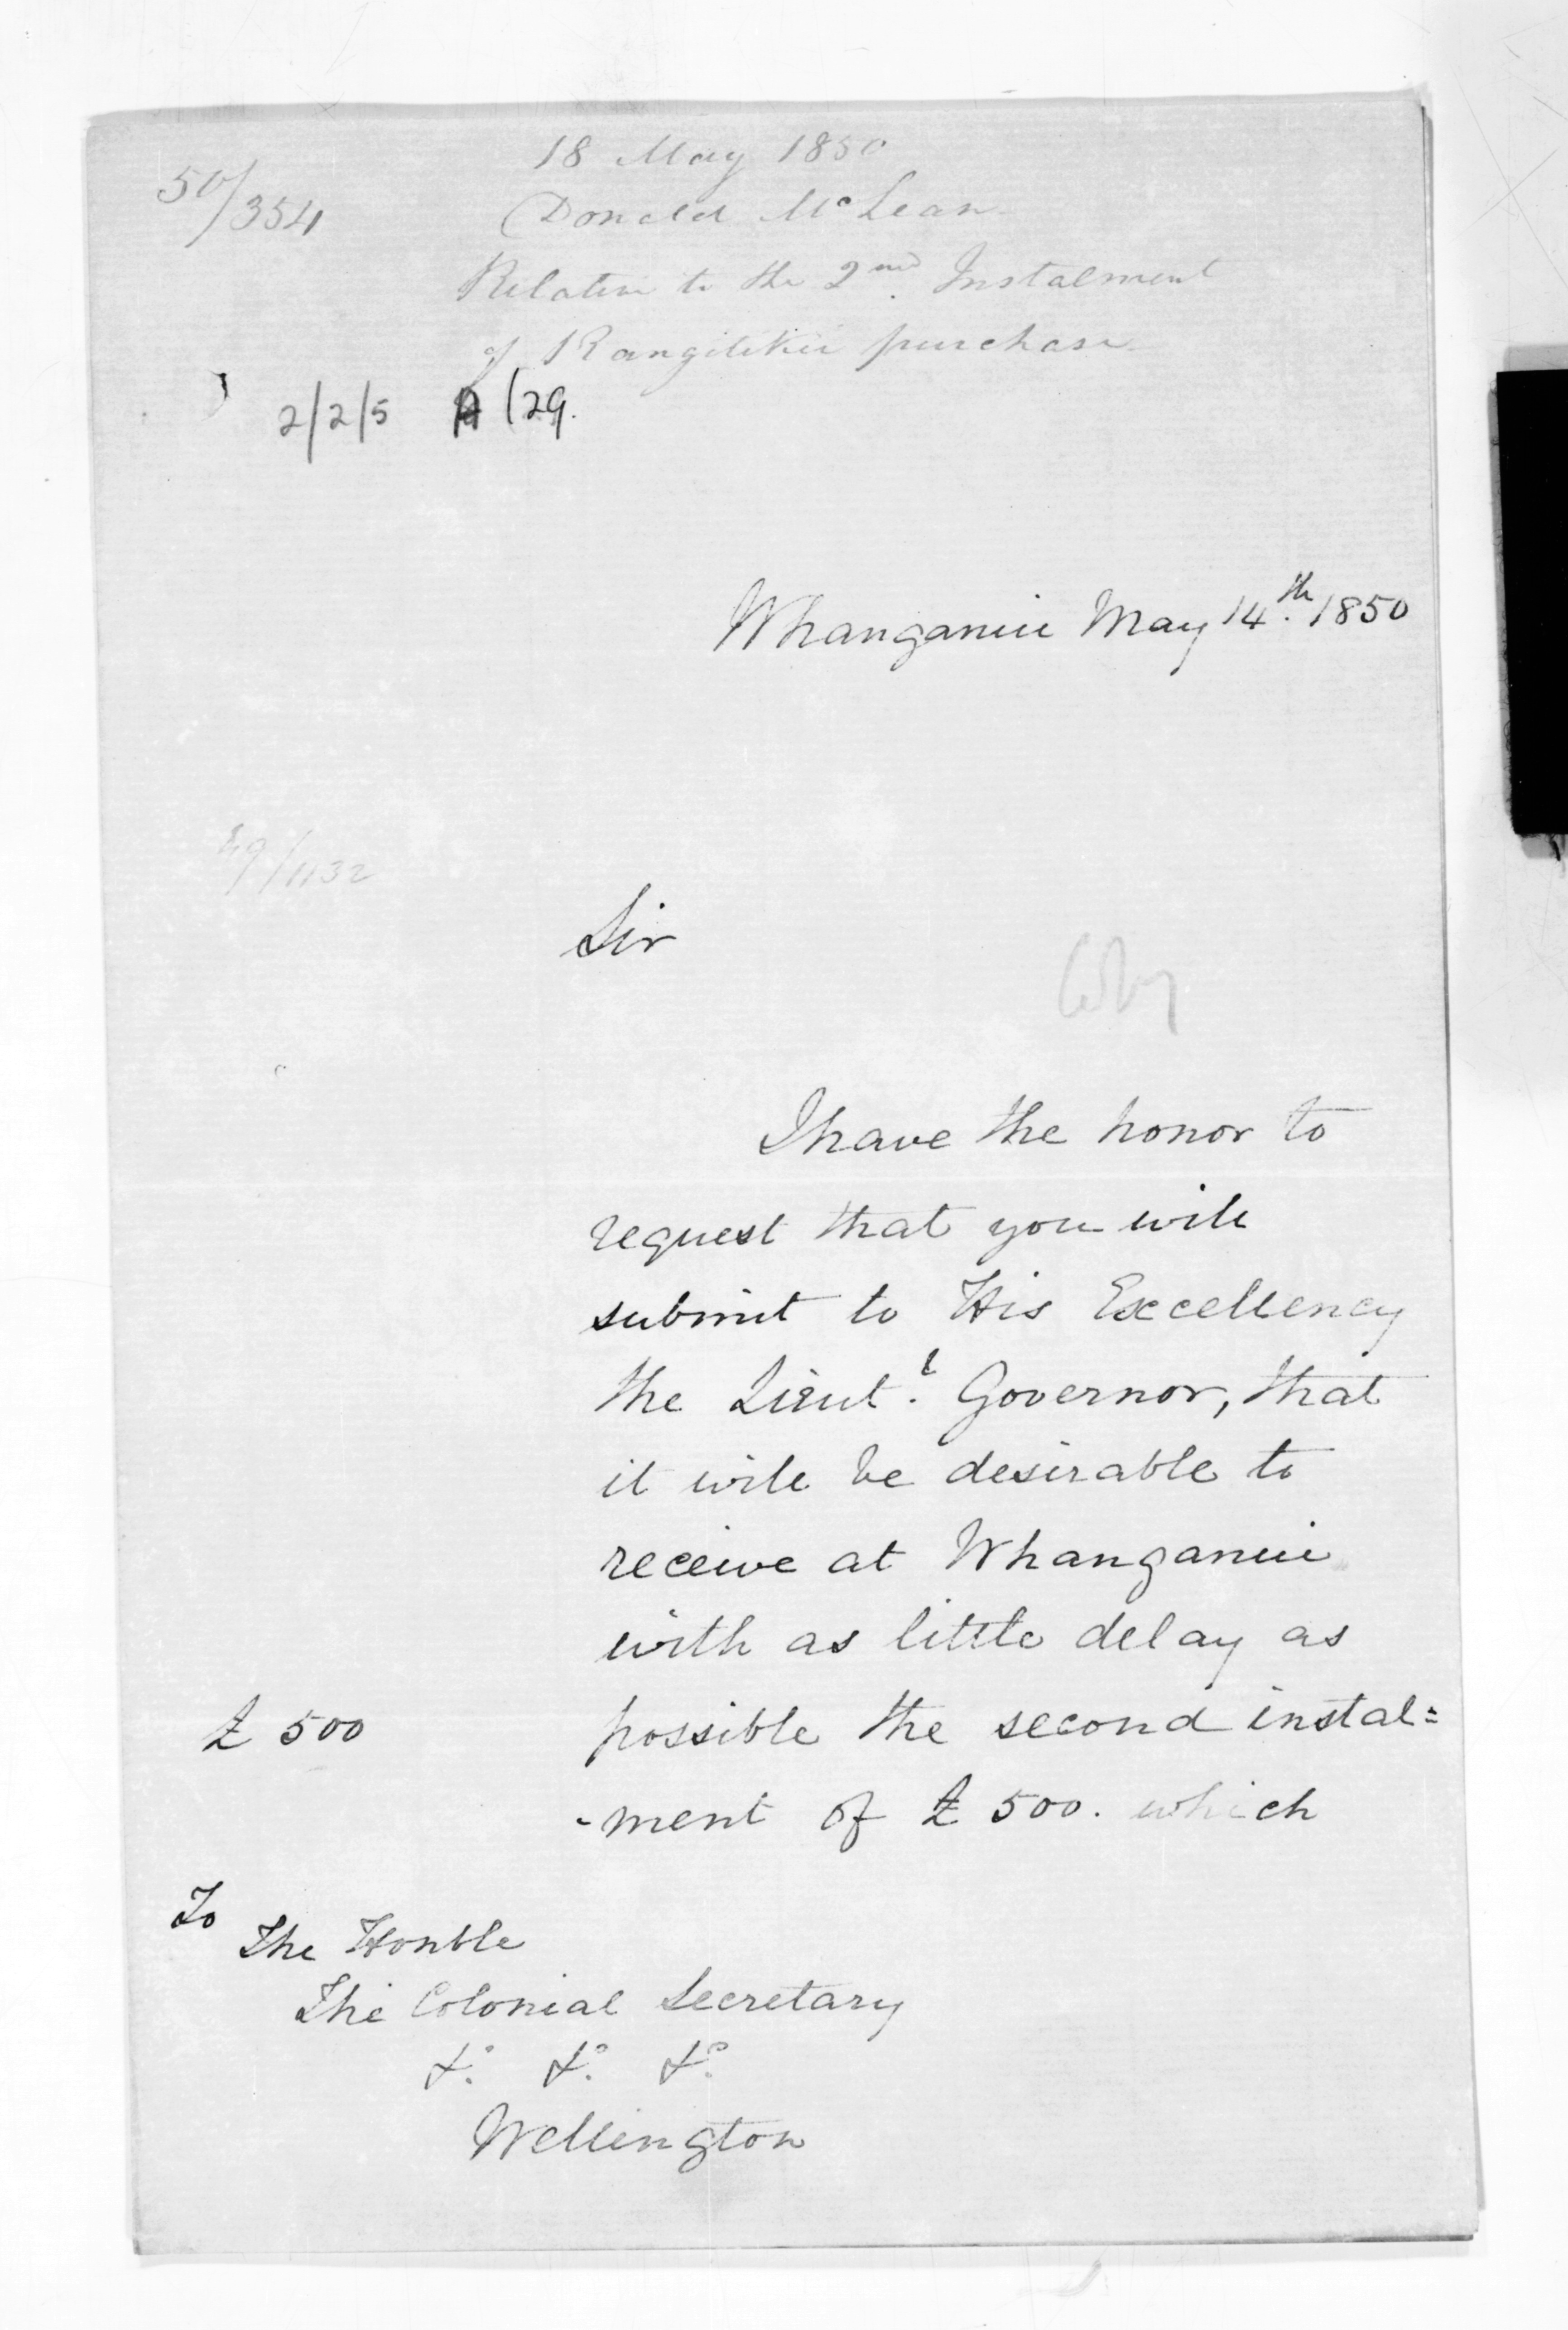 50/354
18 May 1850
Donald McLean
Relative to the 2nd. Instalment
of Rangitikei purchase
2/2/5 A/29.
Whanganui May 14th. 1850
49/1132
Sir
I have the honor to
request that you will
submit to His Excellency
the Lieut.t Governor, that
it will be desirable to
receive at Whanganui
with as little delay as
£ 500 possible the second instal=
-ment of £ 500. which
To
The Honble
The Colonial Secretary
&c. &c. &c.
Wellington